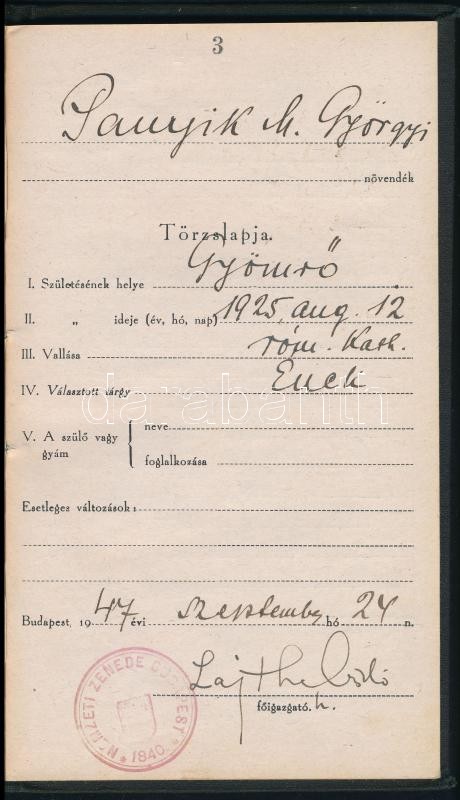 3
Panyik M. Györgyi
növendék
Törzslapja.
I. Születésének helye Gyömrő
II. „ ideje (év, hó, nap) 1925 aug. 12
III. Vallása róm. Kath.
IV. Választott tárgy Ének
V. A szülő vagy gyám
neve
foglalkozása
Esetleges változások:
Budapest, 1947 évi szeptember hó 24 n.
Lajtha László
főigazgató. h.
NEMZETI ZENEDE BUDAPEST * 1840 *
darabanth